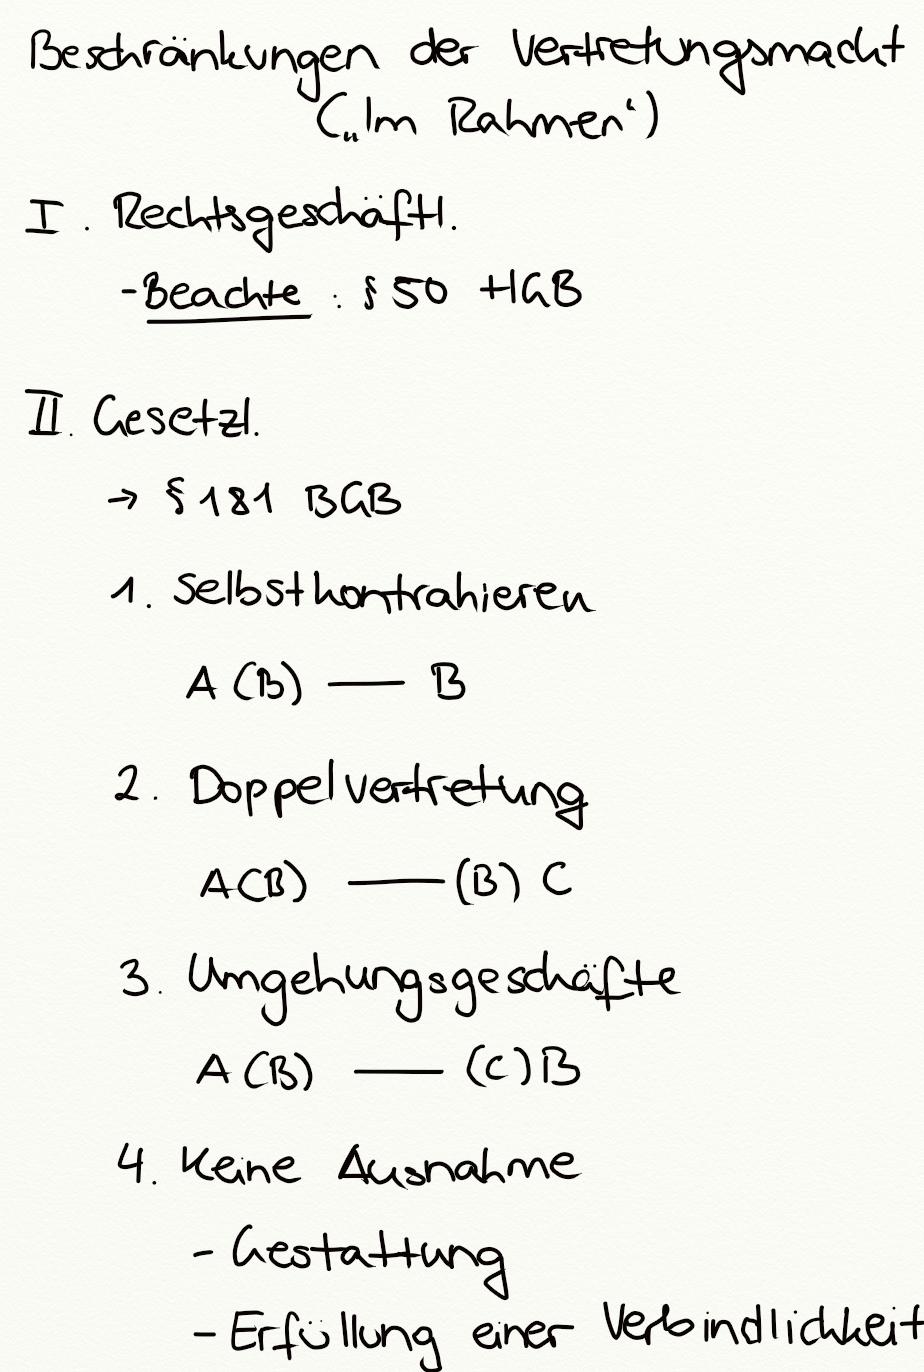 Beschränkungen der Vertretungsmacht
(„Im Rahmen‘)
I. Rechtsgeschäftl.
- Beachte : § 50 HGB
II. Gesetzl.
→ § 181 BGB
1. Selbstkontrahieren
A (B) — B
2. Doppelvertretung
A (B) — (B) C
3. Umgehungsgeschäfte
A (B) — (C) B
4. Keine Ausnahme
- Gestattung
- Erfüllung einer Verbindlichkeit